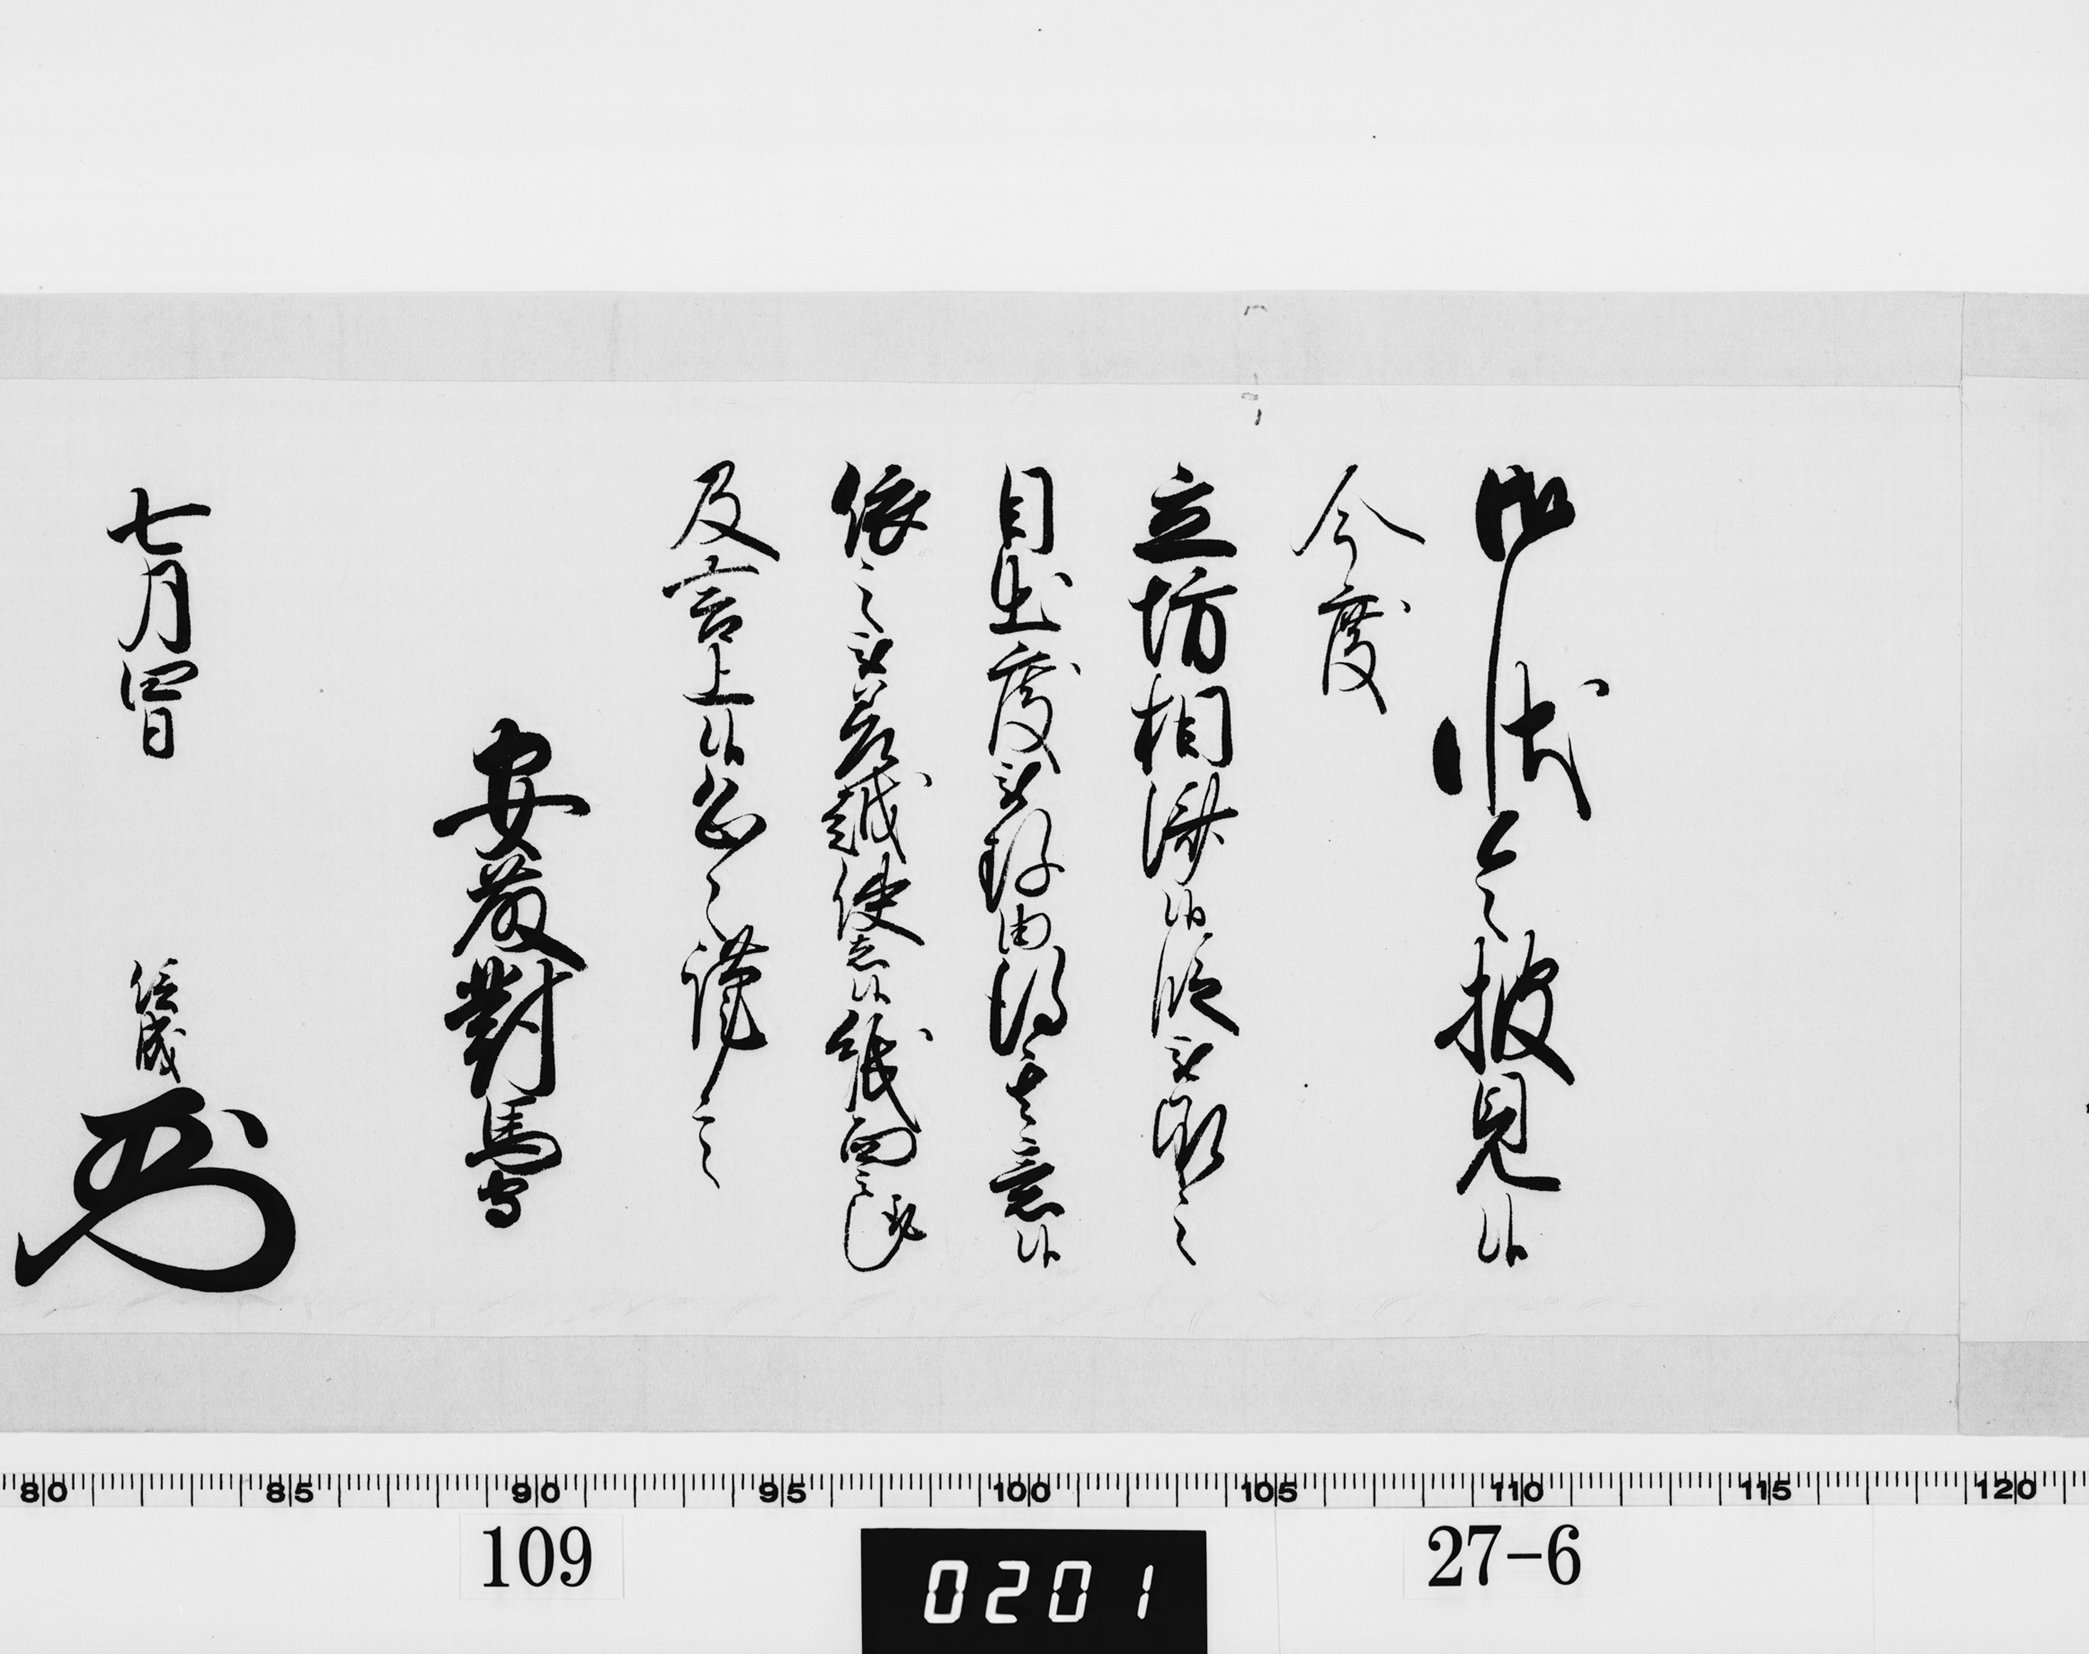 御状令披見候
今度
立坊相済候段被承之
目出度被存由得其意候
依之被差越使者候紙面之趣
及言上候恐々謹言
安藤對馬守
七月四日 信成
80 85 90 95 100 105 110 115 120
109
0201
27-6